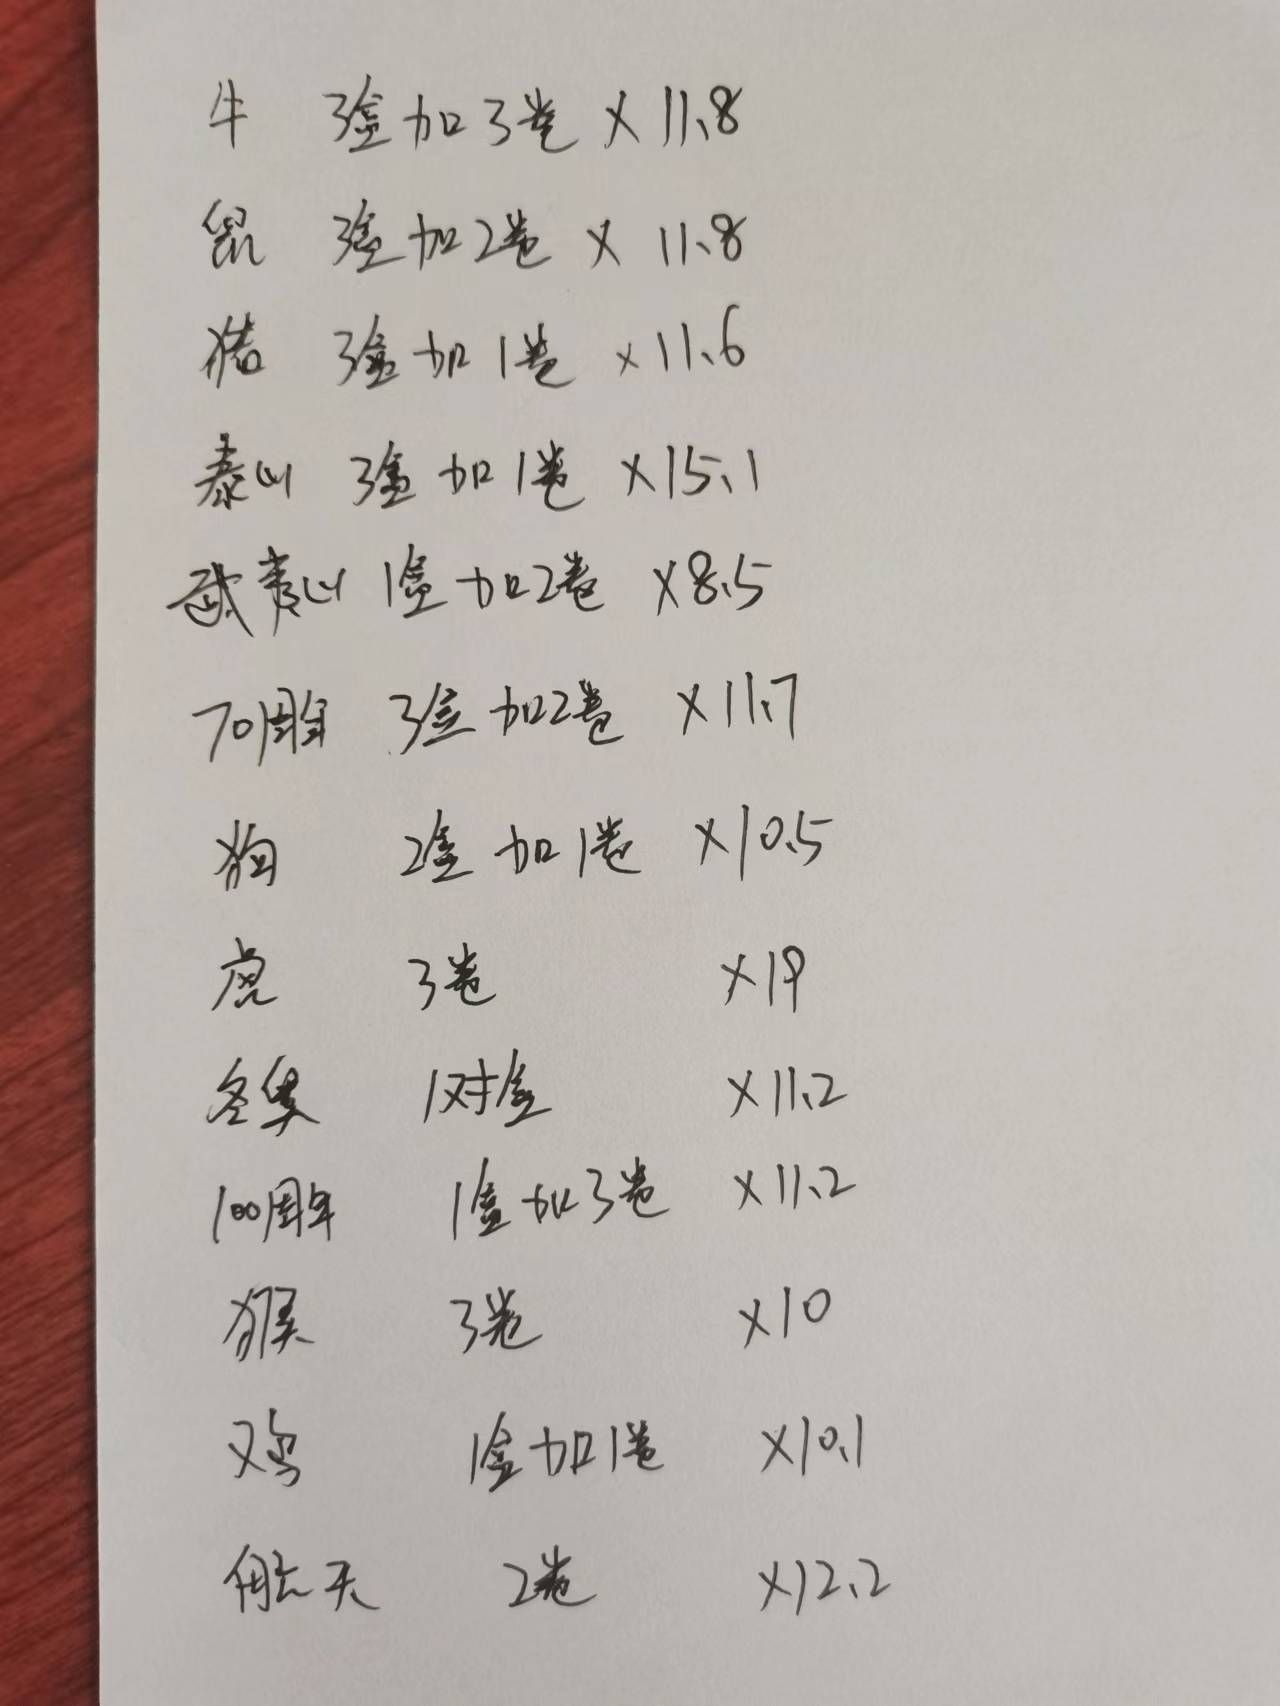 牛 3盒加3卷 × 11.8
鼠 3盒加2卷 × 11.8
猪 3盒加1卷 ×11.6
泰山 3盒加1卷 ×15.1
武夷山 1盒加2卷 ×8.5
70周年 3盒加2卷 ×11.7
狗 2盒加1卷 ×10.5
虎 3卷 ×19
冬奥 1对盒 ×11.2
100周年 1盒加3卷 ×11.2
猴 3卷 ×10
鸡 1盒加1卷 ×10.1
航天 2卷 ×12.2